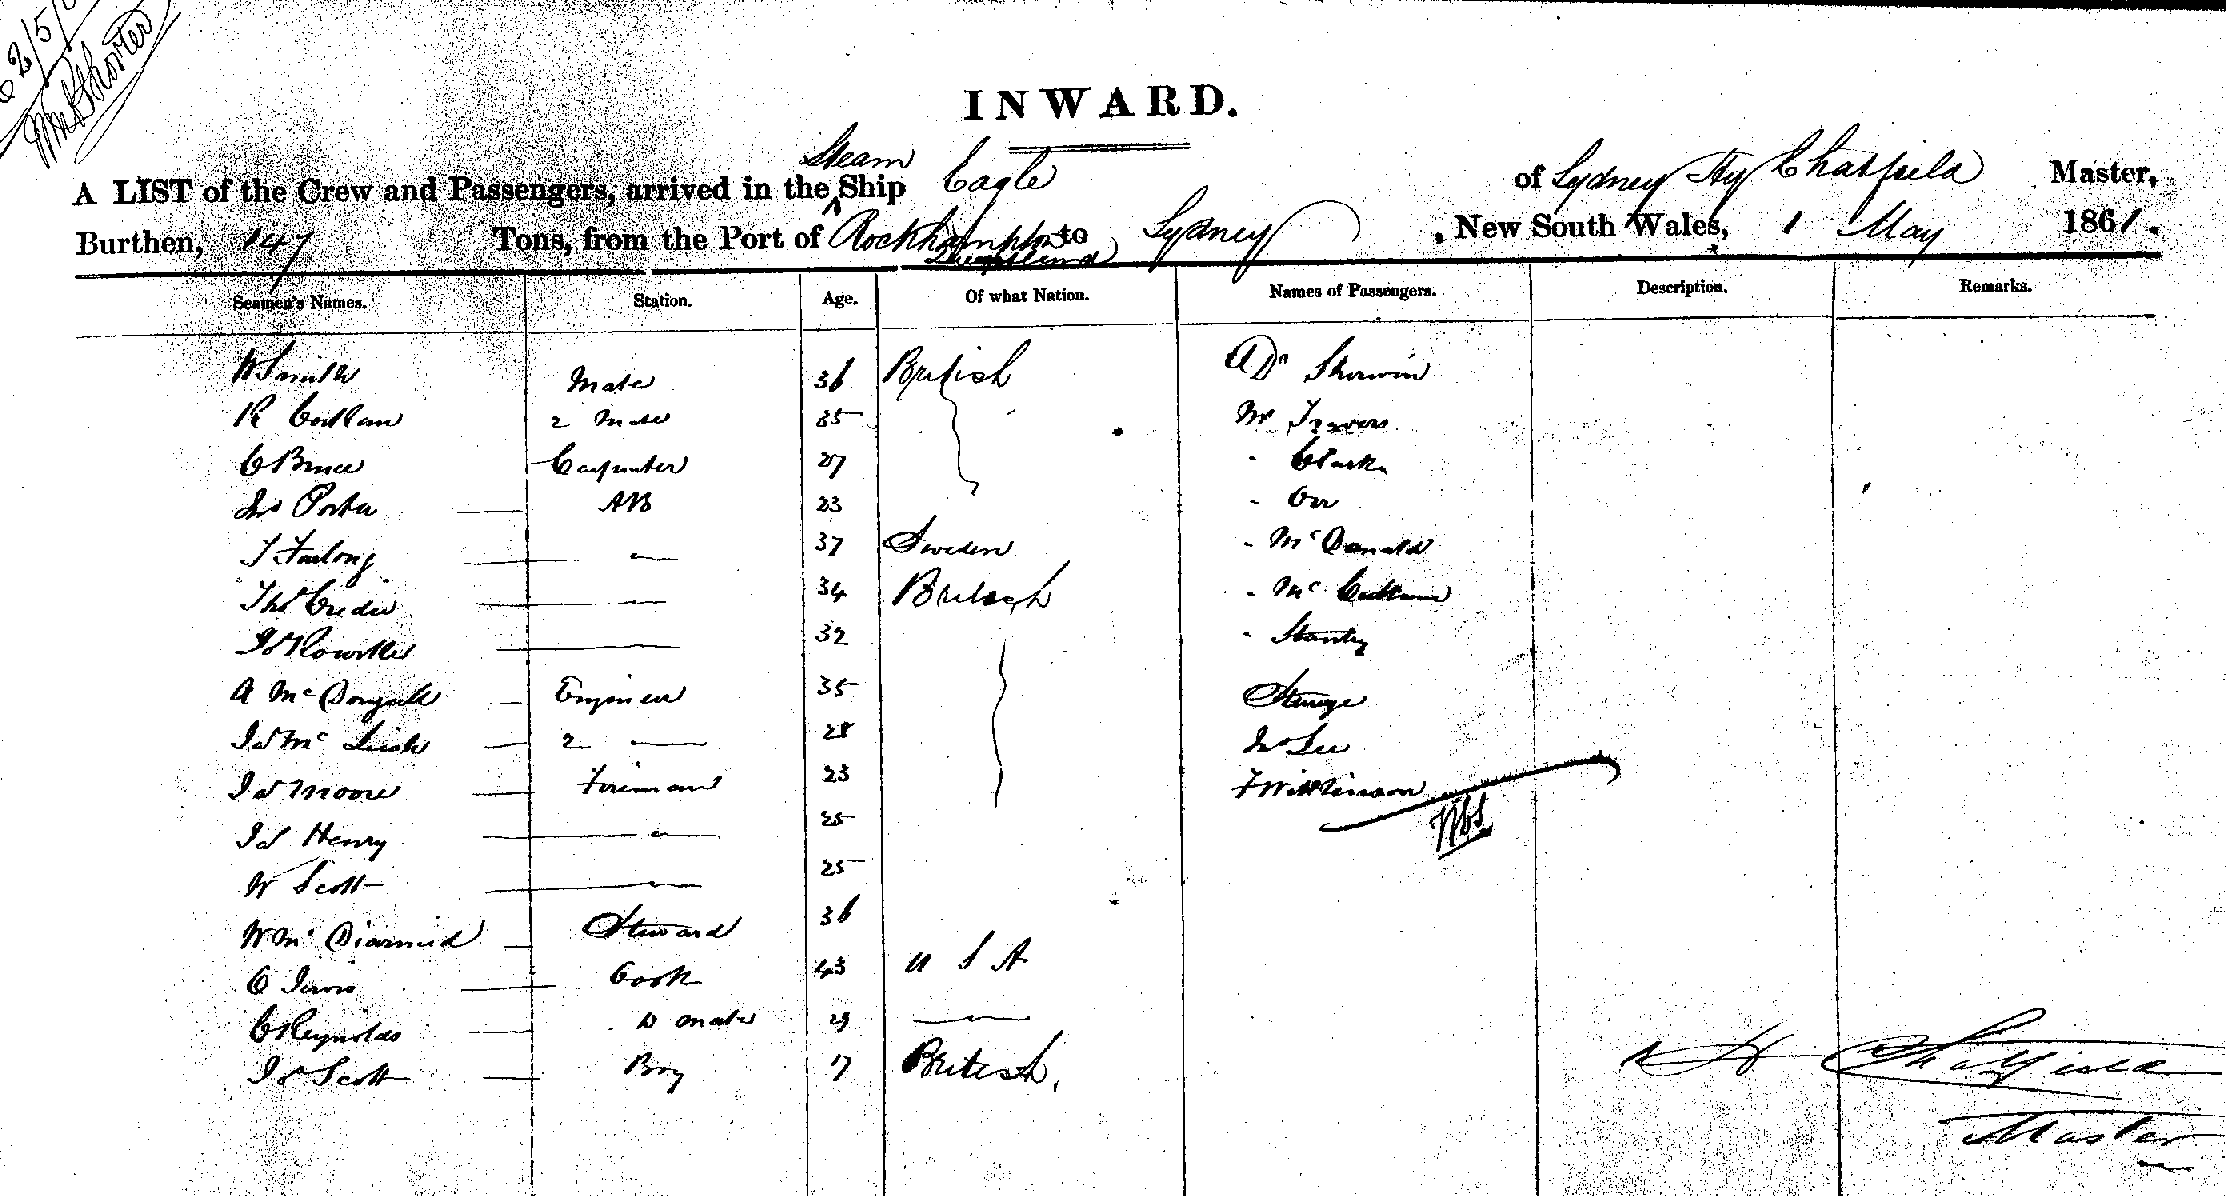 62/5/
INWARD.
A LIST of the Crew and Passengers, arrived in the Steam Ship Eagle of Sydney Hy Chatfield Master,
Burthen, 147 Tons, from the Port of Rockhampton Queensland to Sydney, New South Wales, 1 May 1861.
Seamen's Names. Station. Age. Of what Nation. Names of Passengers. Description. Remarks.
W Smith Mate 36 British Sherwin
R 2 Mate 35 Mr Travers
C Bruce Carpenter 27 " Clark
Jno Porter AB 23 " Orr
T Furlong " 37 Sweden " McDonald
Thos " 34 British " McCallum
Jas 32 " Stanley
A McDougall Engineer 35
Jas McLeish 2 " 28 Jno Lee
Jas Moore Fireman 23 F Wilkinson
Jas Henry " 25
W Scott " 25
W McDiarmid Steward 36
C Cook 43 U S A
C Reynolds Do Mate 29 "
Jas Scott Boy 17 British
H Chatfield
Master